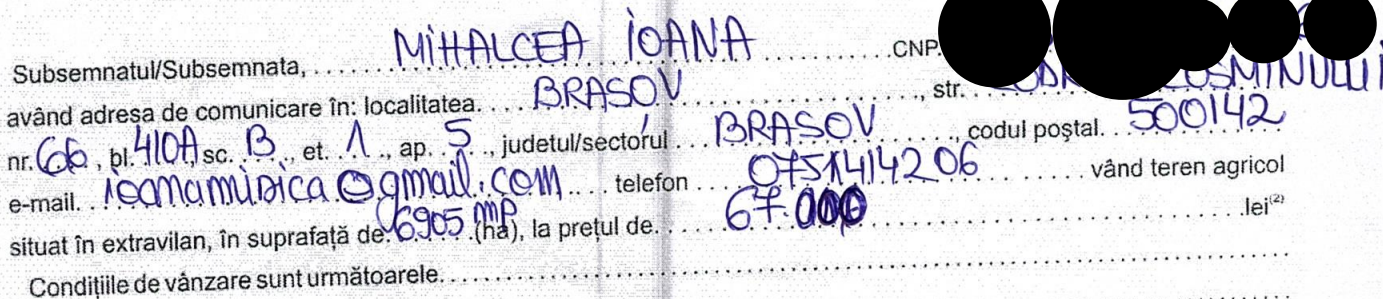 Subsemnatul/Subsemnata, MIHALCEA IOANA CNP
având adresa de comunicare în: localitatea BRASOV, str.
nr. 66, bl. 410A, sc. B, et. 1, ap. 5, judeţul/sectorul BRASOV, codul poştal 500142
e-mail telefon 0751414206 vând teren agricol
situat în extravilan, în suprafaţă de 6905 mp (ha), la preţul de 67.000 lei(2)
Condiţiile de vânzare sunt următoarele